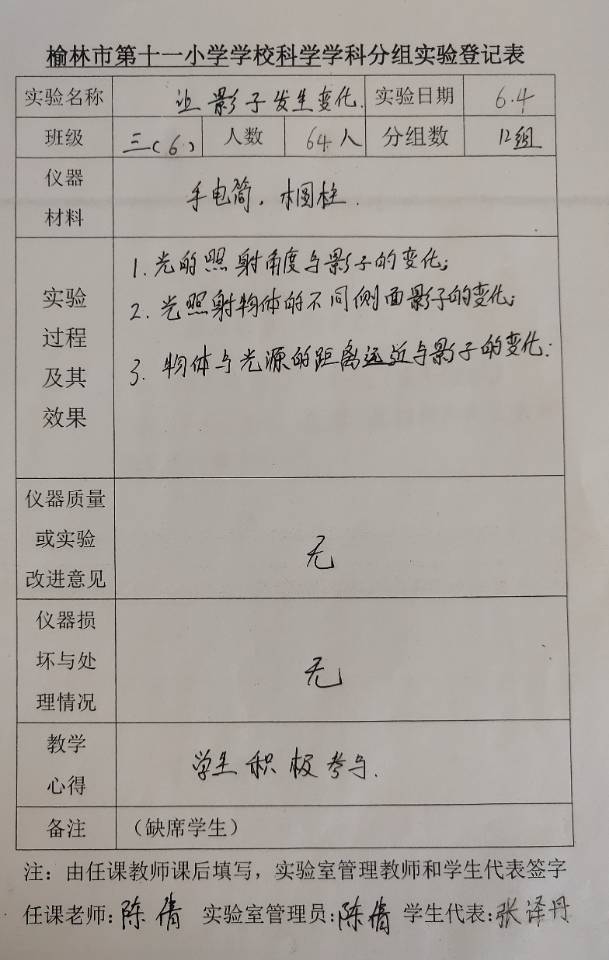 榆林市第十一小学学校科学学科分组实验登记表
实验名称 让影子发生变化. 实验日期 6.4
班级 三(6) 人数 64人 分组数 12组
仪器
材料
手电筒. 木圆柱.
实验
过程
及其
效果
1. 光的照射角度与影子的变化;
2. 光照射物体的不同侧面影子的变化;
3. 物体与光源的距离远近与影子的变化:
仪器质量
或实验
改进意见
无
仪器损
坏与处
理情况
无
教学
心得
学生积极参与.
备注 （缺席学生）
注：由任课教师课后填写，实验室管理教师和学生代表签字
任课老师: 陈倩 实验室管理员: 陈倩 学生代表: 张译丹